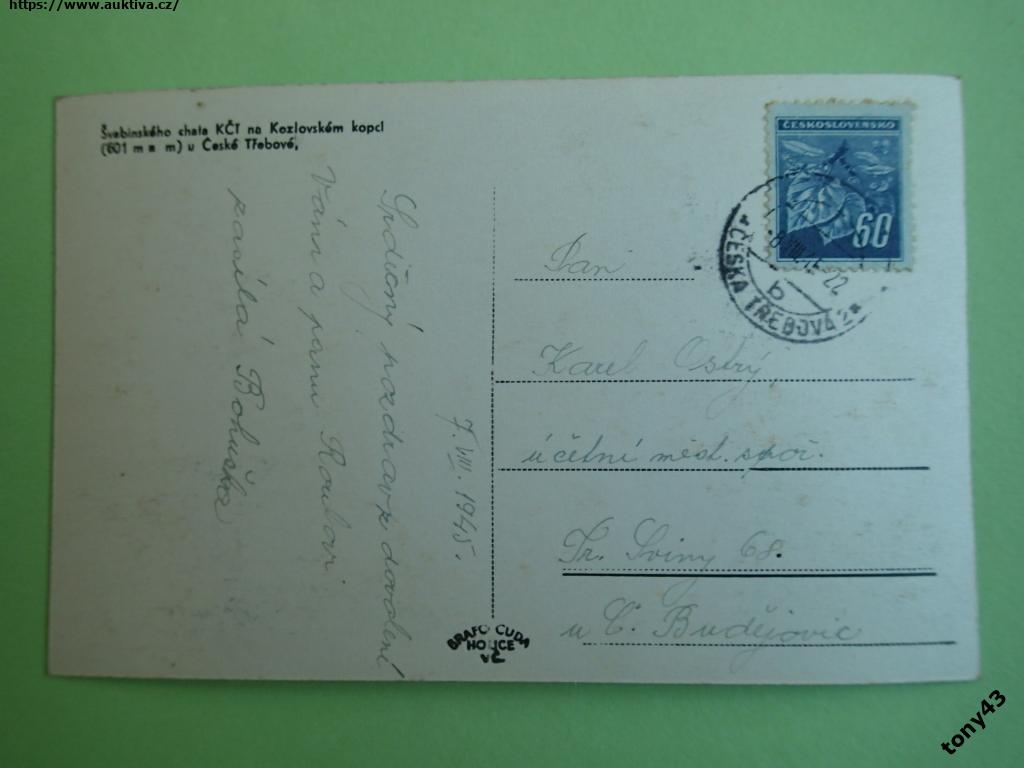 https://www.auktiva.cz/
Švabinského chata KČT na Kozlovském kopci
(601 m n m) u České Třebové,
7. VIII. 1945.
Srdečný pozdrav z dovolené
Vám a panu Roubovi
posílá Bohuška
ČESKOSLOVENSKO
60
ČESKÁ TŘEBOVÁ 2
b
Pan
Karel Ostrý
účetní měst. spoř.
Tr. Sviny 68.
u Č. Budějovic
BRAFO CUDA
HOLICE
tony43